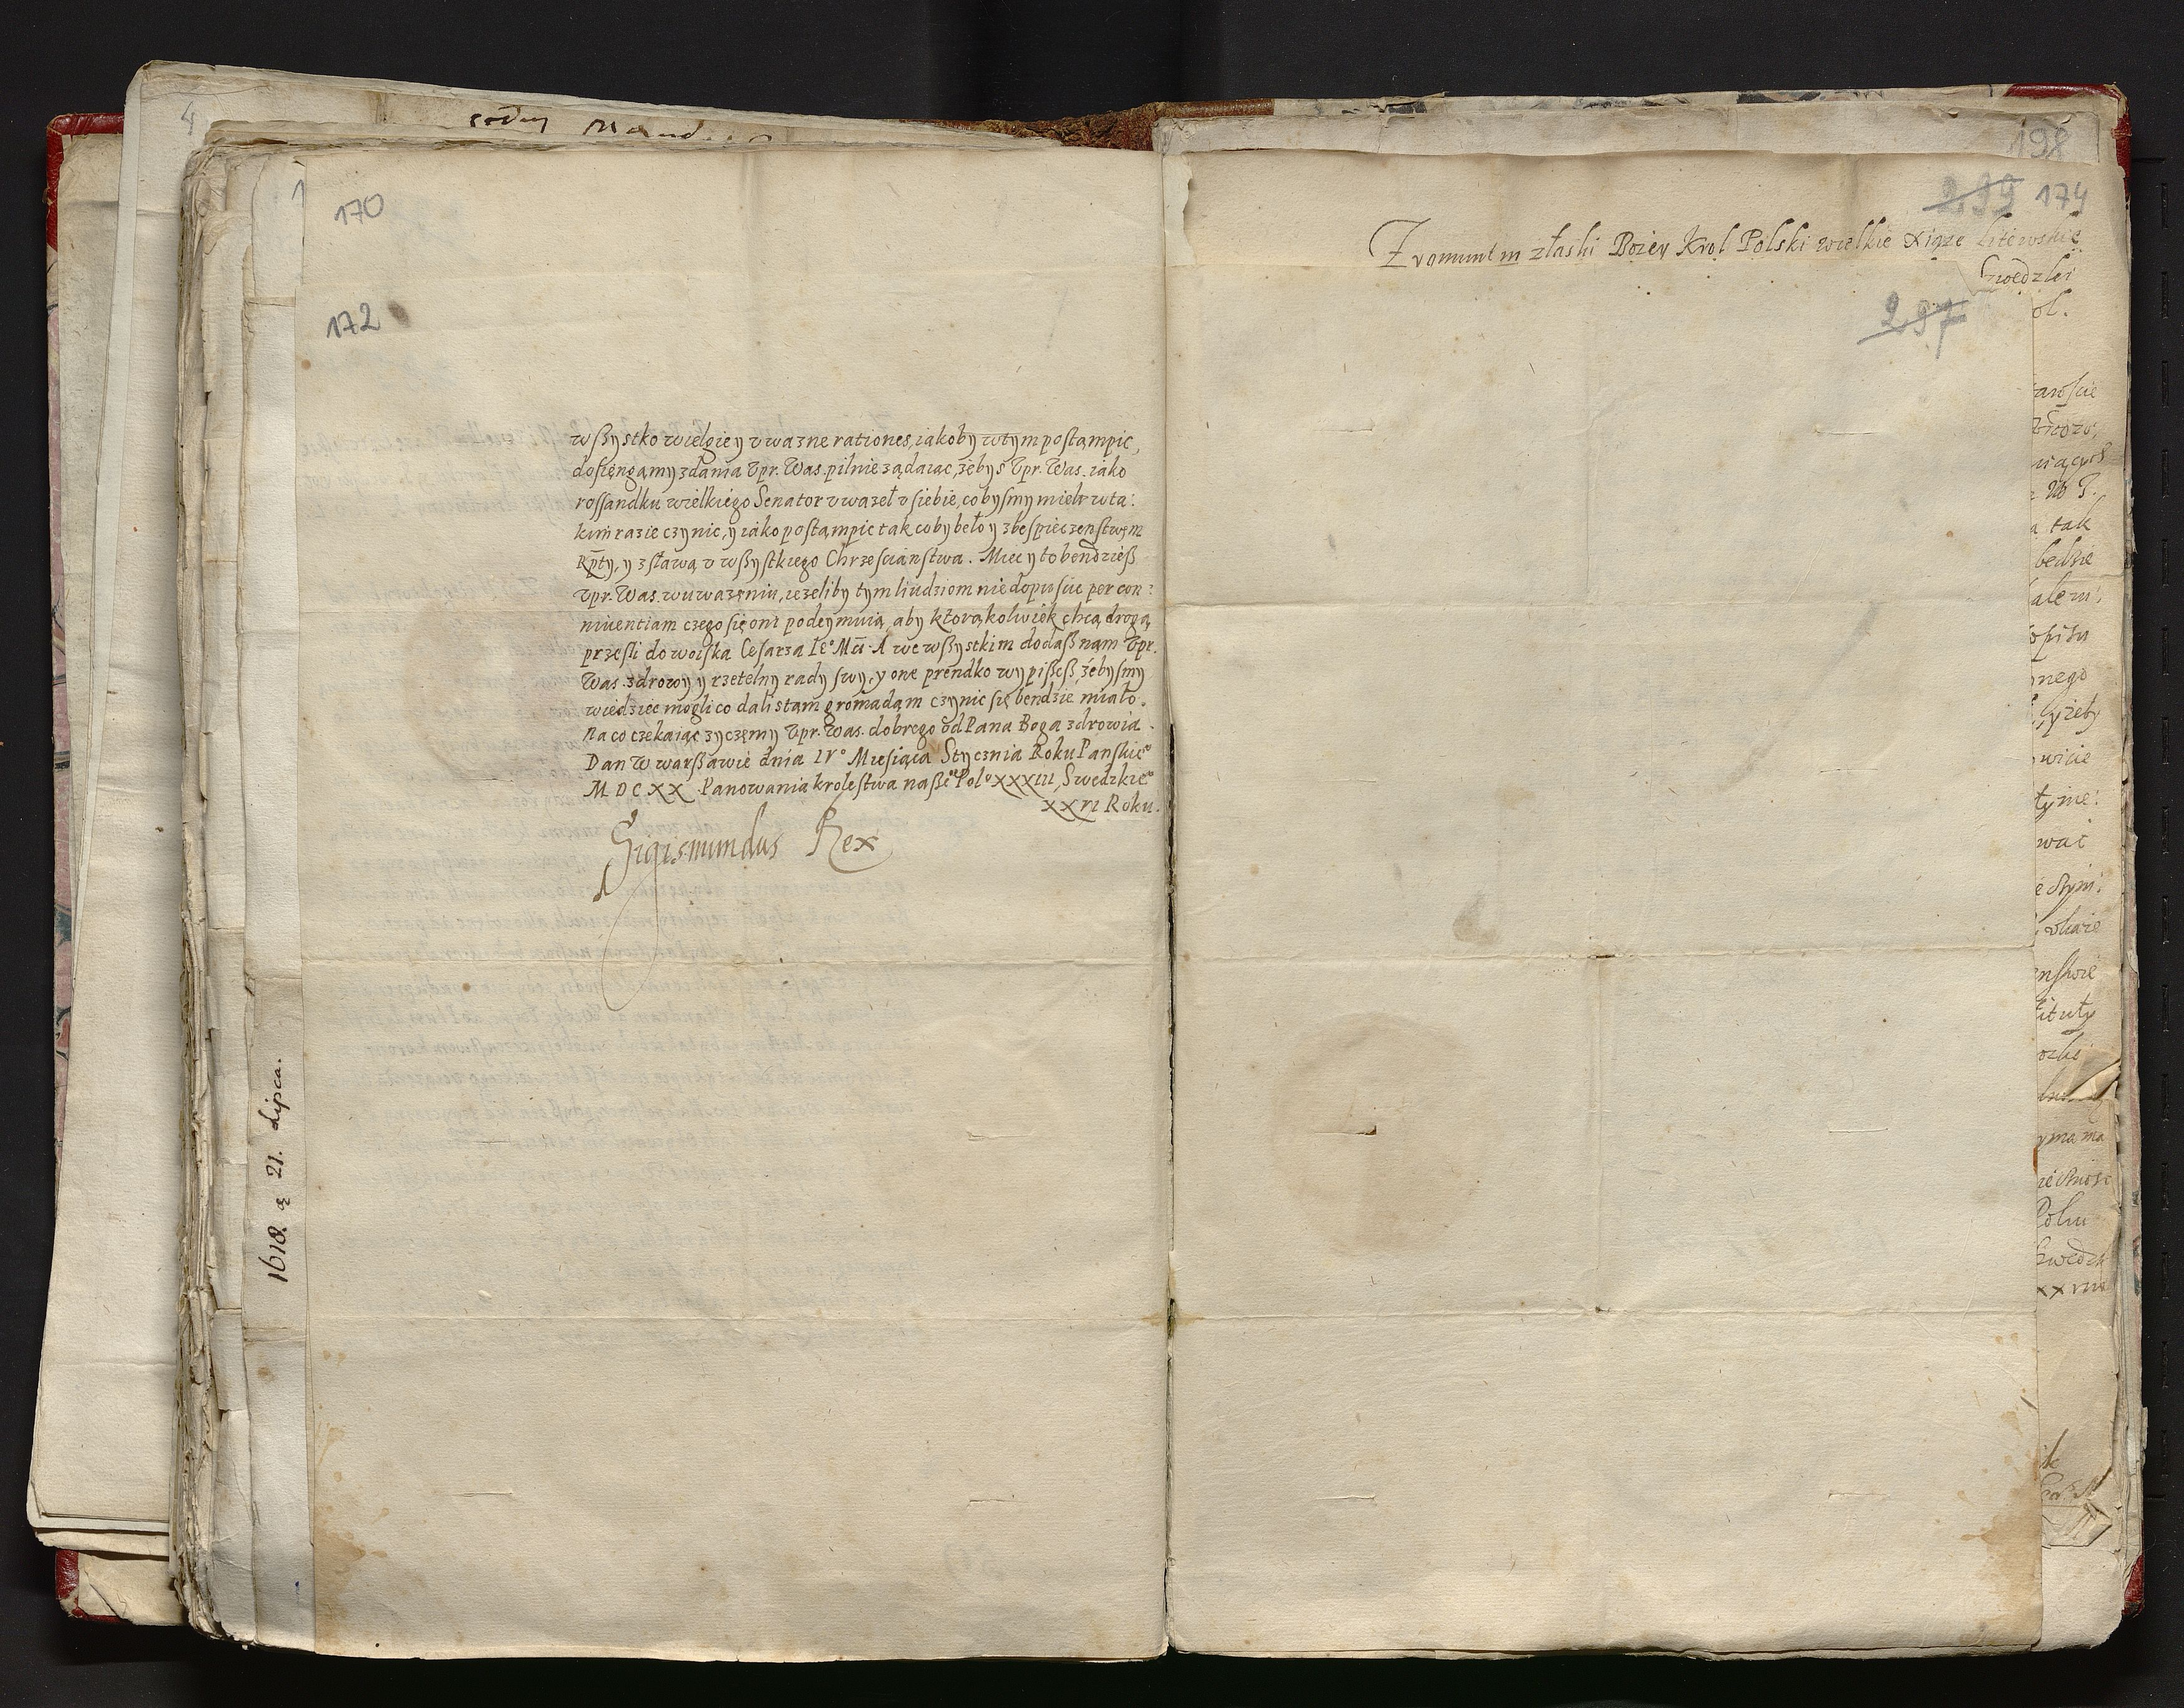 4
170
172
wßystko wielgie y vwazne rationes, iakoby wtym postąmpic,
dosięngamy zdania Vpr. Was. pilnie ządaiąc, zębys Vpr. Was. iako
rossandku wielkiego Senator vwazeł v siebie, cobysmy mieli wta:
kim razie czynic, y iako postąmpic tak coby beło y zbespieczenstwem
Rpty, y zsławą v wßystkiego Chrzescianstwa. Miec y to bendzieß
Vpr. Was. wuwazęniu, iezeliby tym liudziom nie dopuscic per con:
niuentiam czego się oni podeymuią, aby ktorąkolwiek chcą drogą
prześli do woiska Cesarza Ie° Mci. A we wßystkim dodaß nam Vpr.
Was. zdrowy y rzetelny rady swy, y one prendko wypißeß, żebysmy
wiedziec mogli co dali stam gromadąm czynic się bendzie miało.
Na co czekaiąc zyczęmy Vpr. Was. dobrego od Pana Boga zdrowia.
Dan W warßawie dnia IV° Miesiąca Stycznia Roku Panskie°
M D C XX Panowania krolestwa naßе° Pol° XXXIII, Swedzkie°
XXVI Roku.
Sigismundus Rex
1618. 21. Lipca.
198
299 174
Zygmunt III złaski Bożey Krol Polski wielkie Xiąże Litewskie
Szwedzki
ol.
297
tak
bedzie
nego
wicie
wać
ituły
xx